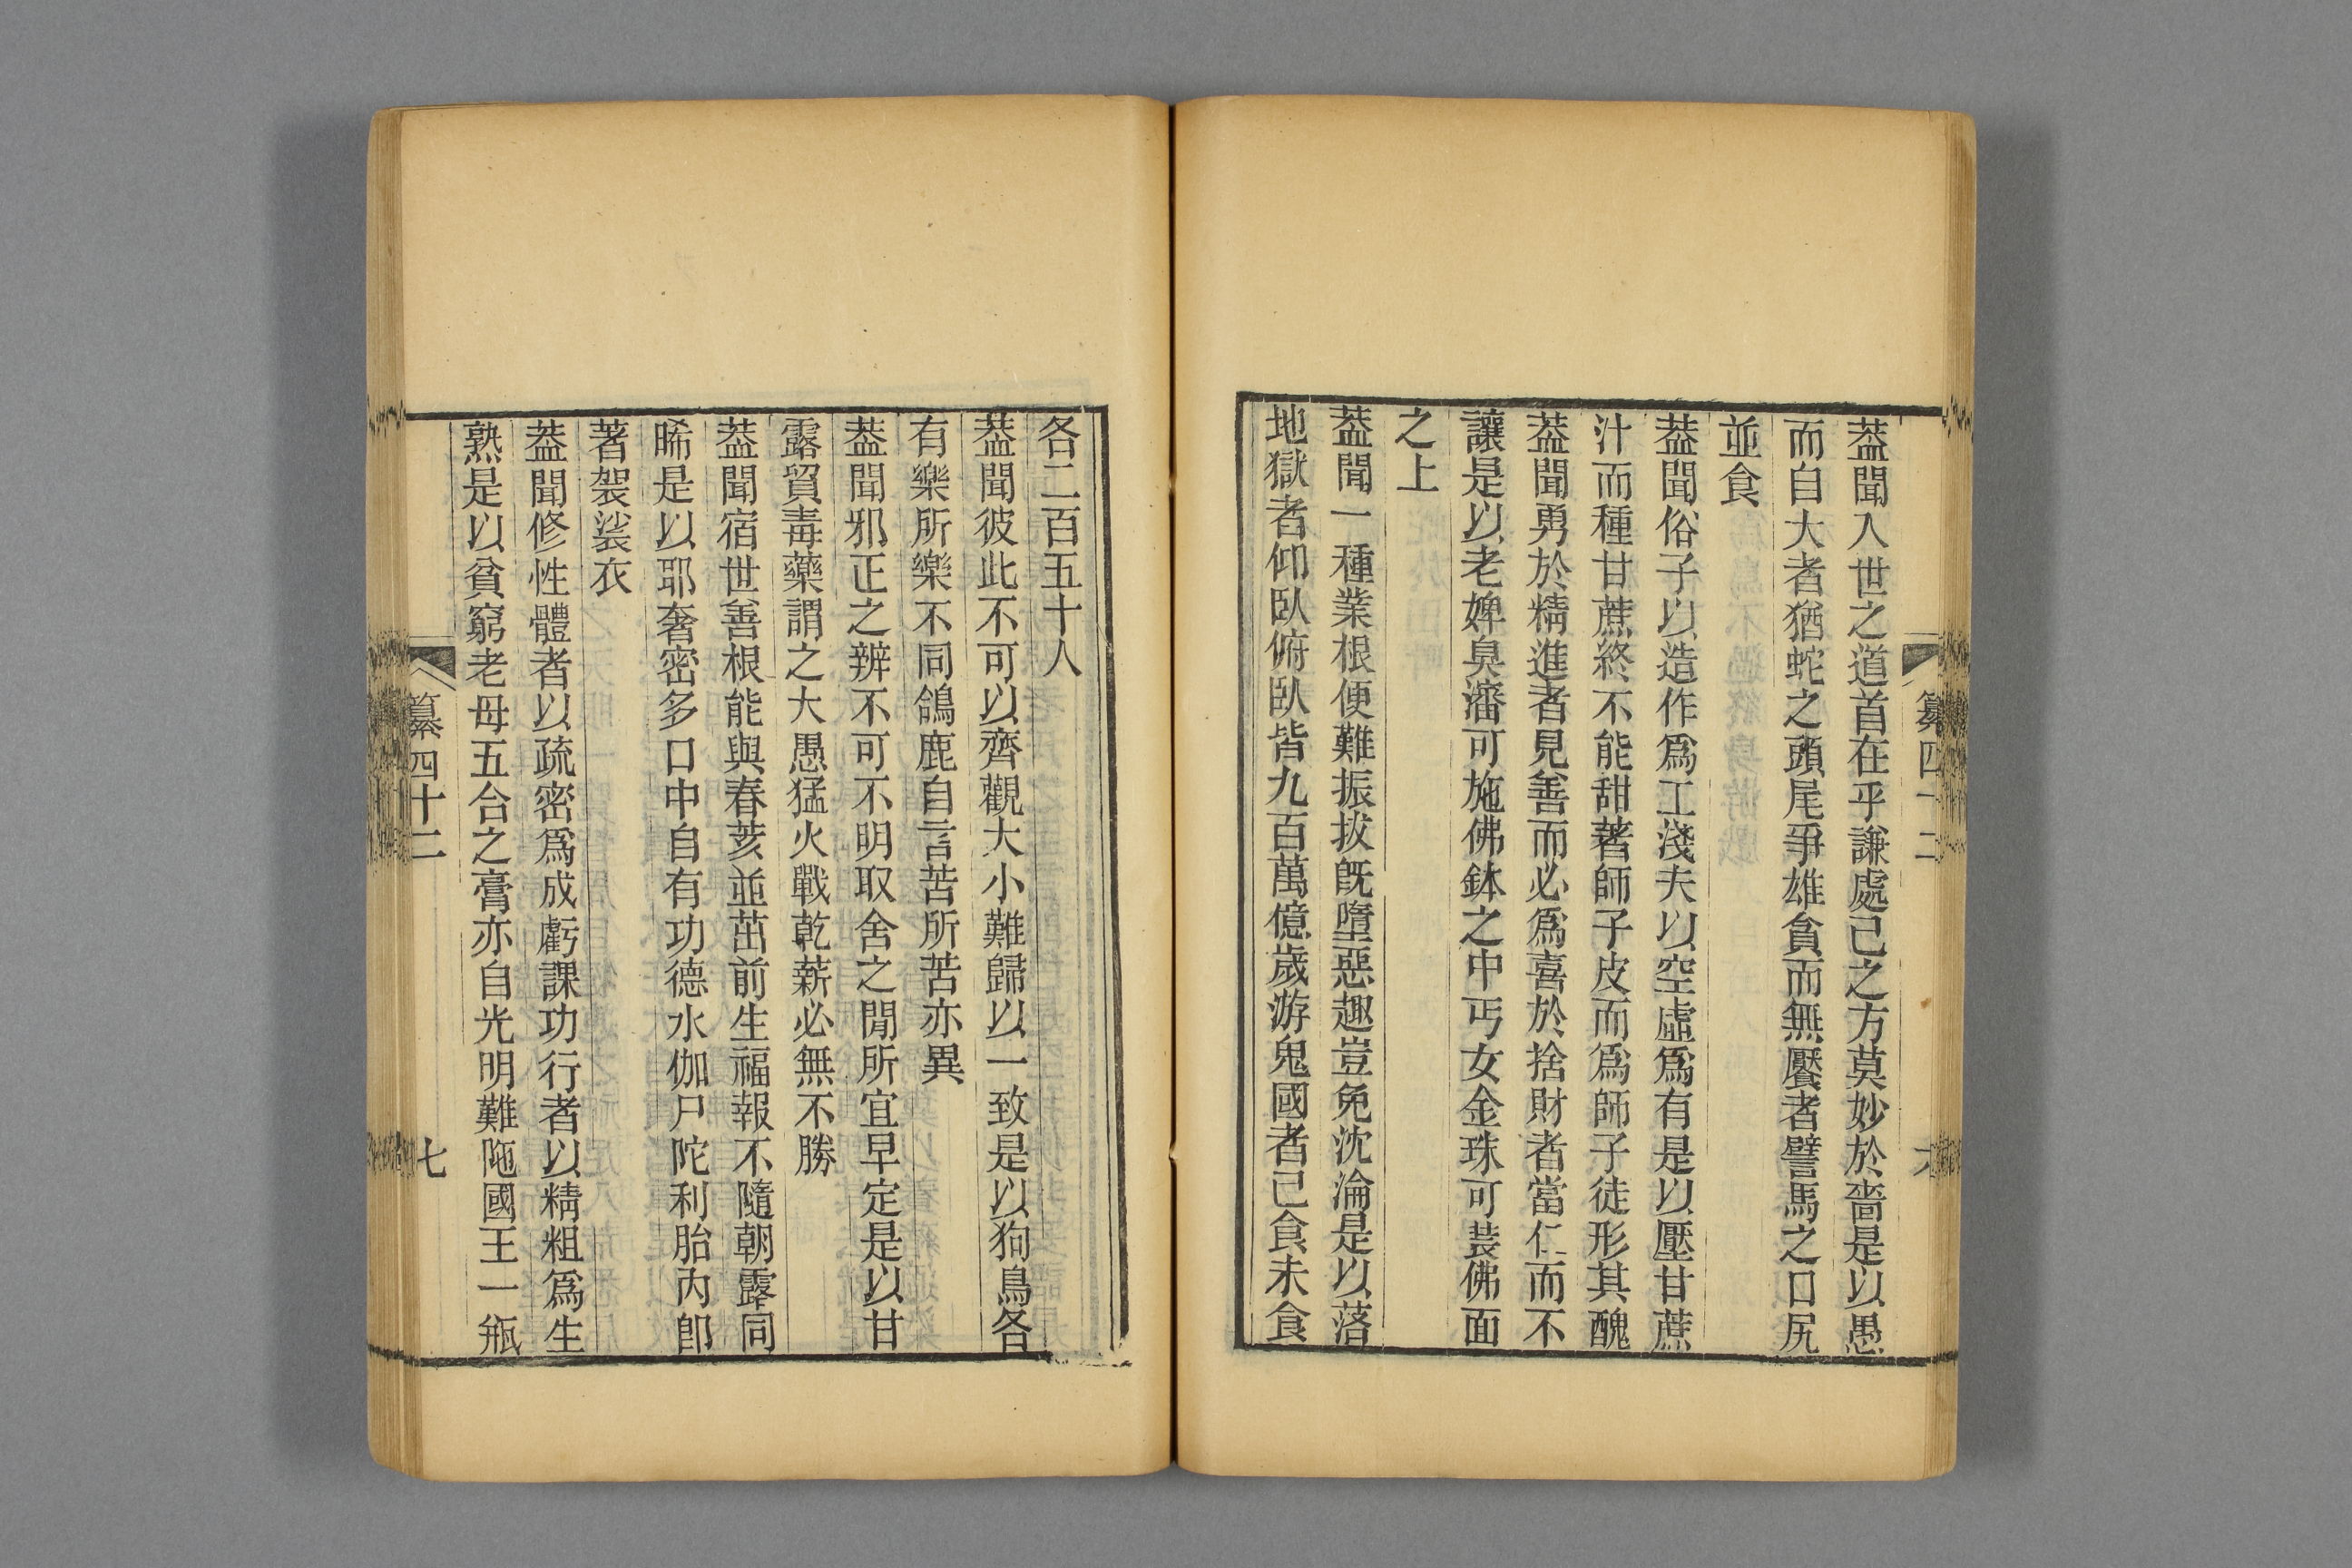 蓋聞入世之道首在乎謙處己之方莫妙於嗇是以愚
而自大者猶蛇之頭尾爭雄貪而無饜者譬馬之口尻
並食
蓋聞俗子以造作爲工淺夫以空虛爲有是以壓甘蔗
汁而種甘蔗終不能甜著師子皮而爲師子徒形其醜
蓋聞勇於精進者見善而必爲喜於捨財者當仁而不
讓是以老婢臭瀋可施佛鉢之中丐女金珠可裝佛面
之上
蓋聞一種業根便難振拔旣墮惡趣豈免沈淪是以落
地獄者仰臥俯臥皆九百萬億歲游鬼國者已食未食
各二百五十人
蓋聞彼此不可以齊觀大小難歸以一致是以狗鳥各
有樂所樂不同鴿鹿自言苦所苦亦異
蓋聞邪正之辨不可不明取舍之閒所宜早定是以甘
露貿毒藥謂之大愚猛火戰乾薪必無不勝
蓋聞宿世善根能與春荄並茁前生福報不隨朝露同
晞是以耶奢密多口中自有功德水伽尸陀利胎內卽
著袈裟衣
蓋聞修性體者以疏密爲成虧課功行者以精粗爲生
熟是以貧窮老母五合之膏亦自光明難陁國王一瓶
纂四十二
七